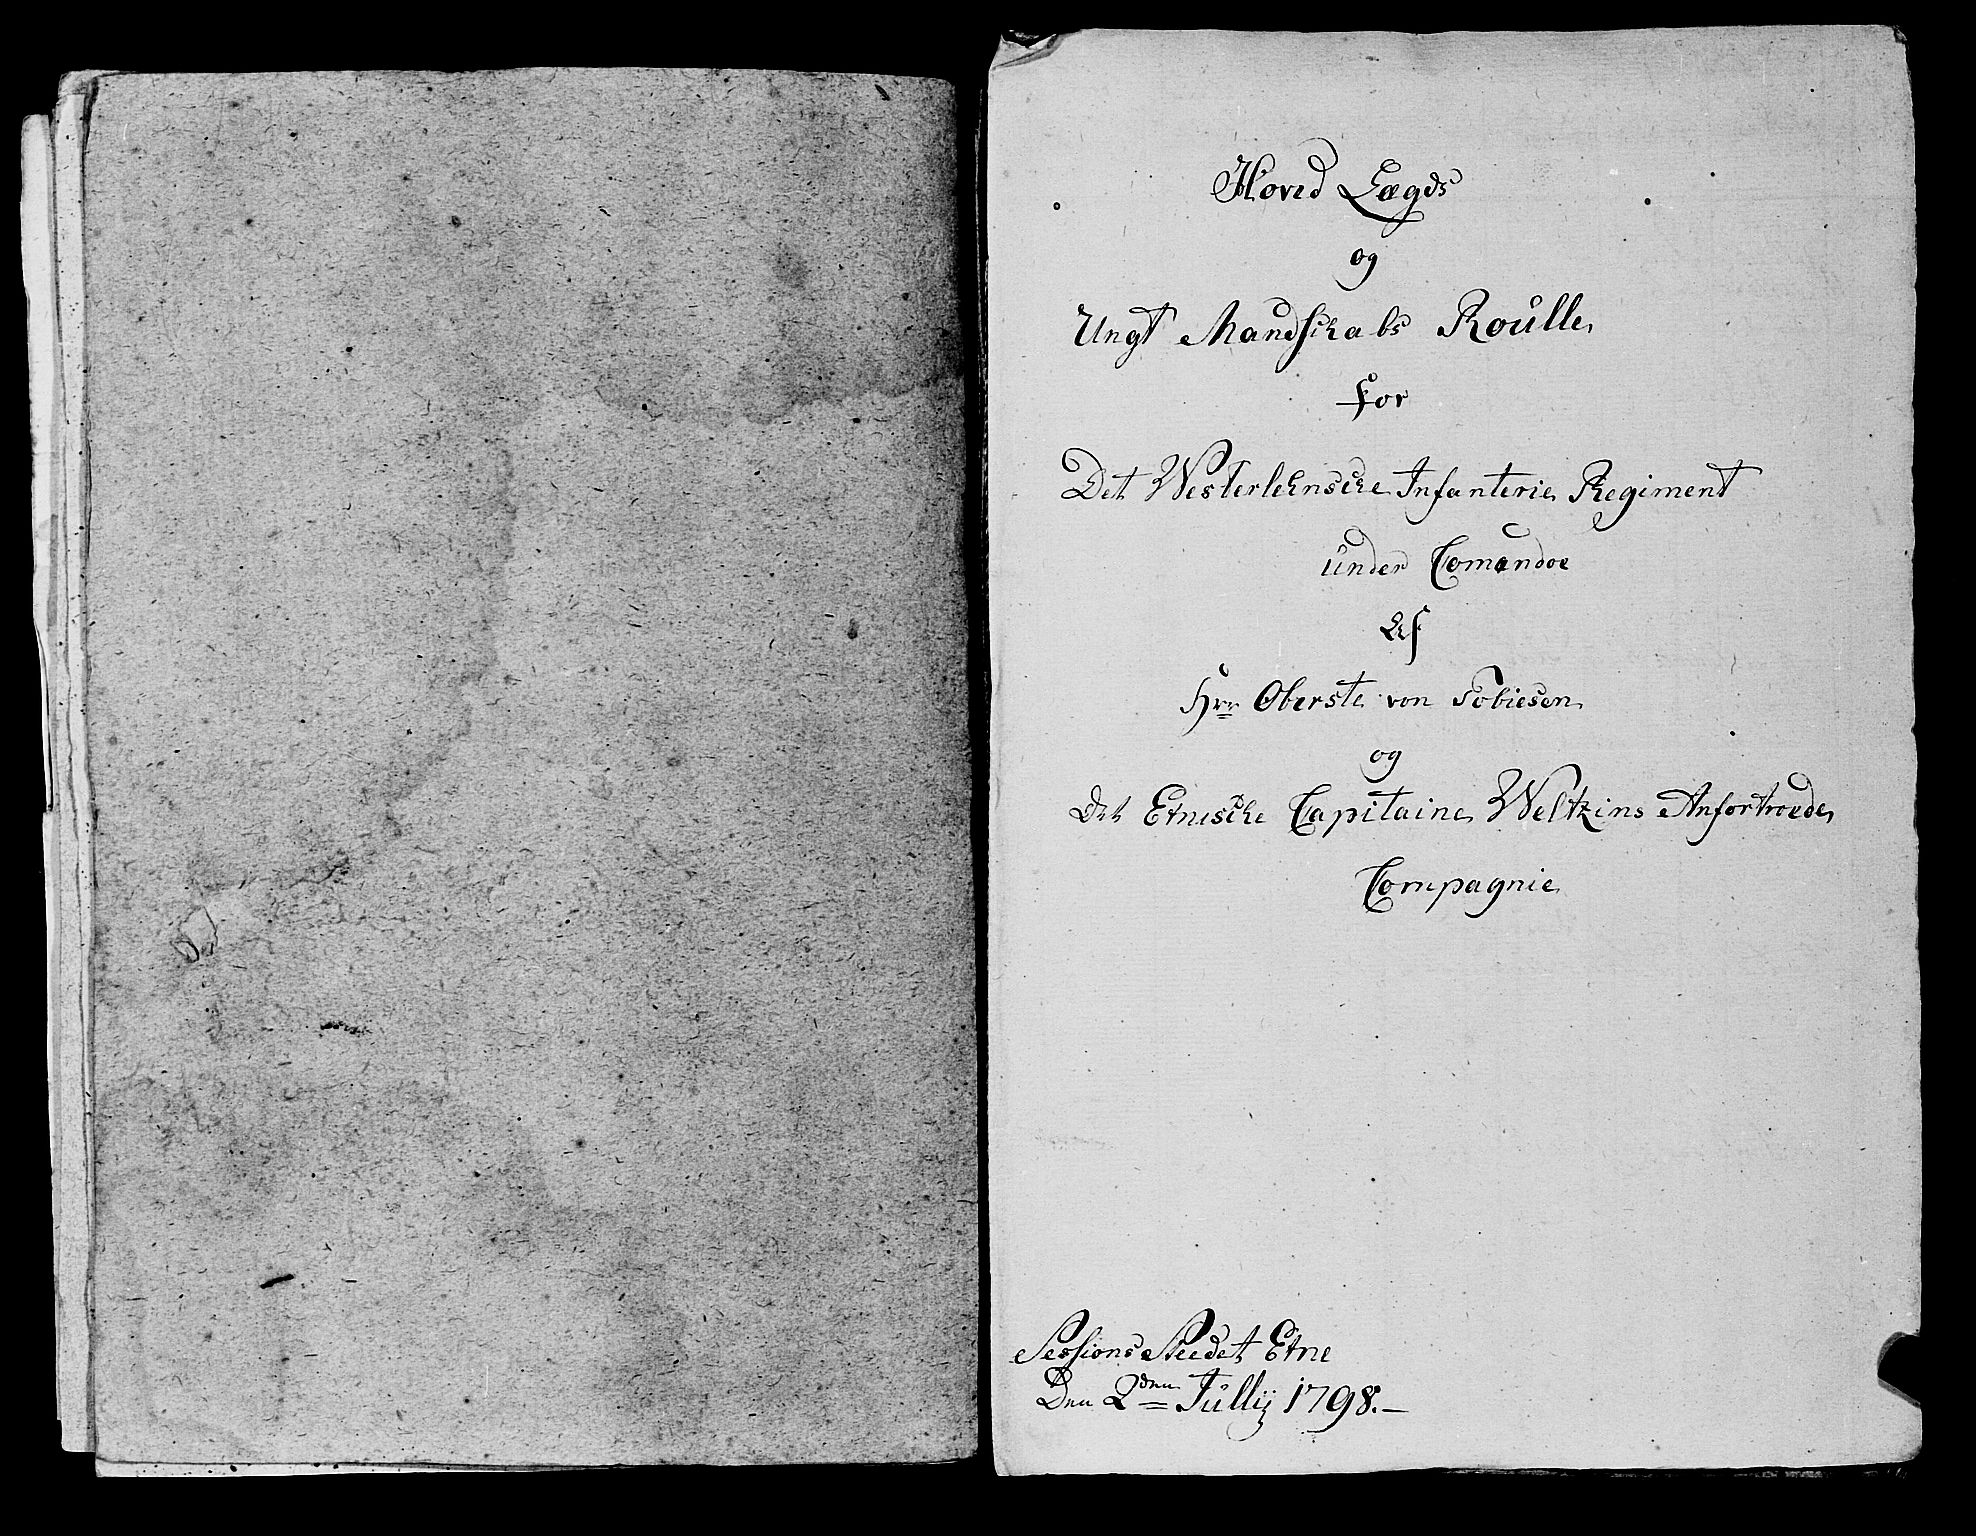 Hoved Lægds
og
Ungt Mandskabs Roulle
for
Det Westerlehnske Infanterie Regiment
under Comandoe
Af
Hrr Oberste von Tobiesen
og
Det Etneske Capitaine Weltzins Anfortroede
Compagnie
Sessions Steedet Etne
Den 2den Jullij 1798.